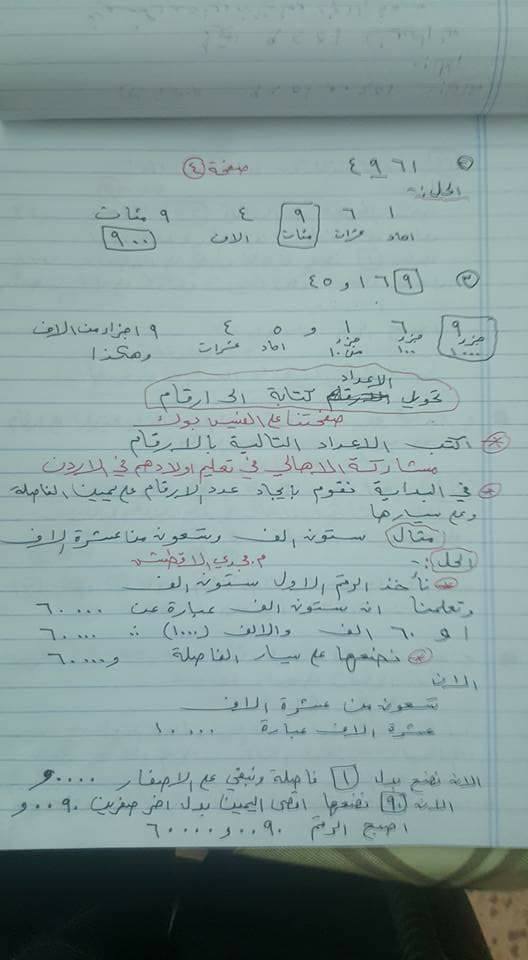 ② ٤ ٩ ٦١ صفحة ④
الحل :-
١ ٦ ٩ ٤ ٩ مئات
احاد عشرات مئات الاف ٩٠٠
③ ٩ ٦ ١ و ٤٥
٩ ٦ ١ و ٥ ٤ ٩ اجزاء من الاف
جزء ١٠٠٠ جزء ١٠٠ جزء من ١٠ احاد عشرات وهكذا
الاعداد
تحويل كتابة الى ارقام
صفحتنا على الفيس بوك
* اكتب الاعداد التالية بالارقام
مشاركة الاهالي في تعليم اولادهم في الاردن
* في البداية نقوم بإيجاد عدد الارقام على يمين الفاصلة
وعلى يسارها
مثال ستون الف وتسعون من عشرة الاف
الحل :- م. مجدي الاقطش
* نأخذ الرقم الاول ستون الف
وتعلمنا ان ستون الف عبارة عن ٦٠٠٠٠
او ٦٠ الف والالف (١٠٠٠) ∴ ٦٠٠٠٠
* نضعها على يسار الفاصلة و٦٠٠٠٠
الان
تسعون من عشرة الاف
عشرة الاف عبارة ١٠٠٠٠
الان نضع بدل ١ فاصلة ونبقي على الاصفار ٠٠٠٠و
الان ٩٠ نضعها اقصى اليمين بدل اخر صفرين ٠٠٩٠و
اصبح الرقم ٠٠٩٠و٦٠٠٠٠